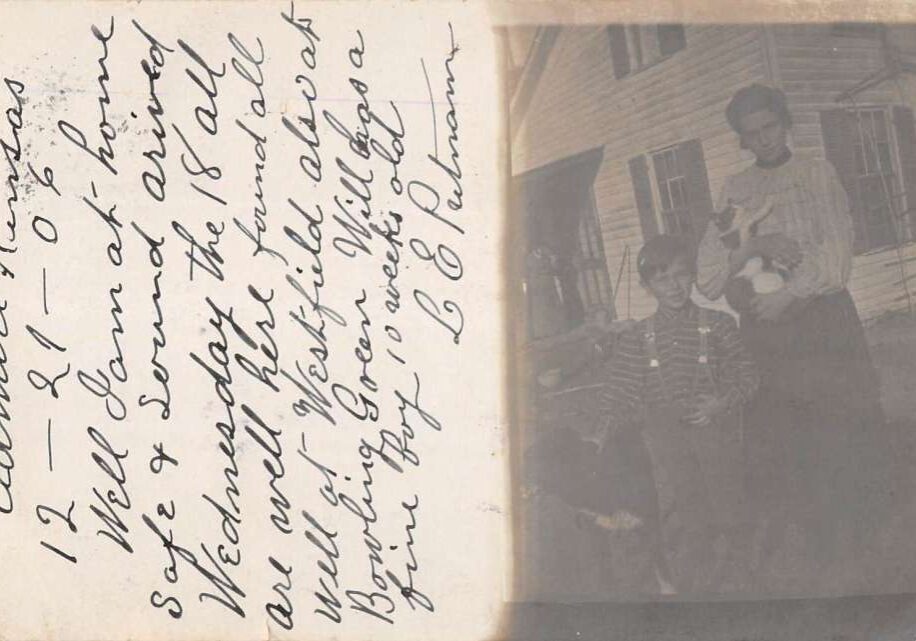 Kansas
12 – 21 – 06
Well I am at home
Safe & Sound arived
Wednesday the 18 all
are well here found all
well at Westfield also at
Bowling Green Will has a
fine Boy 10 weeks old
L E Putnam